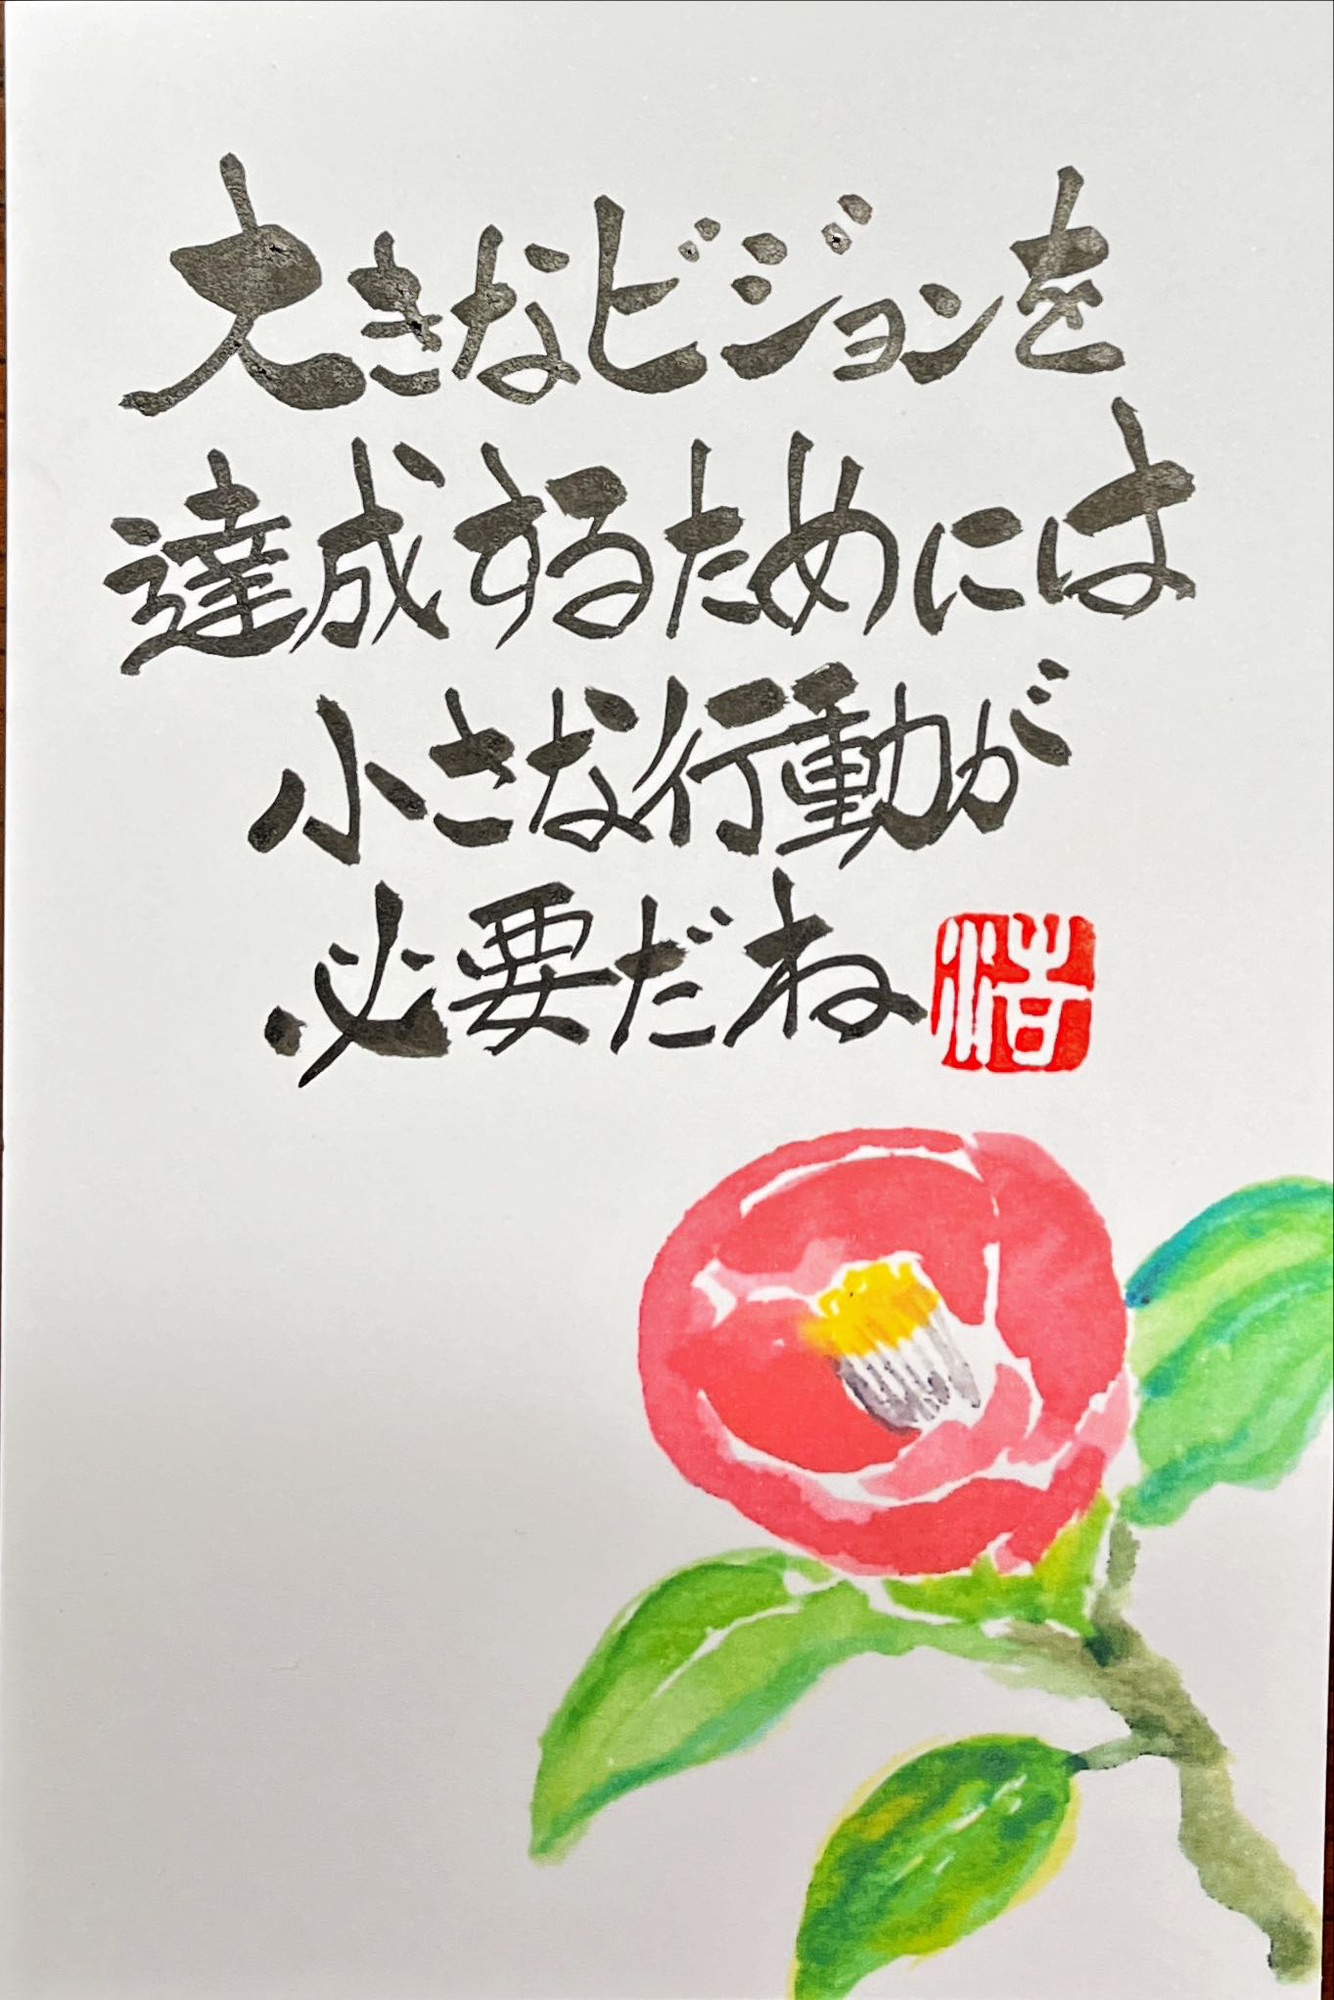 大きなビジョンを
達成するためには
小さな行動が
必要だね
浩